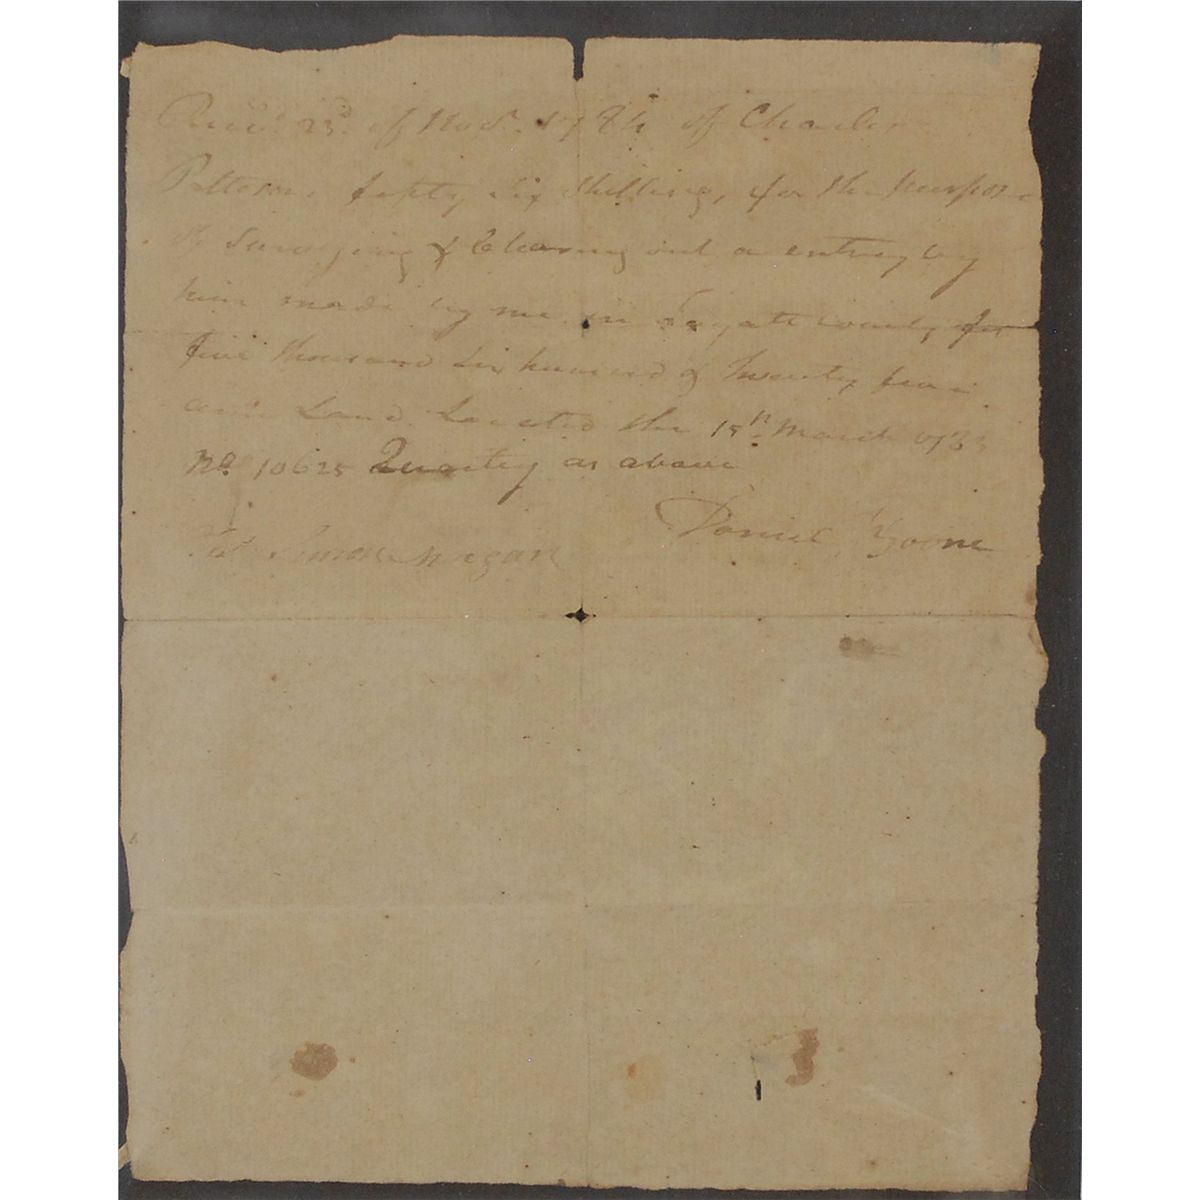 Recd. 23d. of Novr. 1784 of Charles
Patteson, fifty Six Shillings, for the Purpose
of Surveying & Clearing out a entrey by
him made by me in Fayatt County for
five thousand Six hundred & twenty four
acres Land Located the 15th March 1783
No. 10625 Quantity as above
Daniel Boone
Test Simon Megan